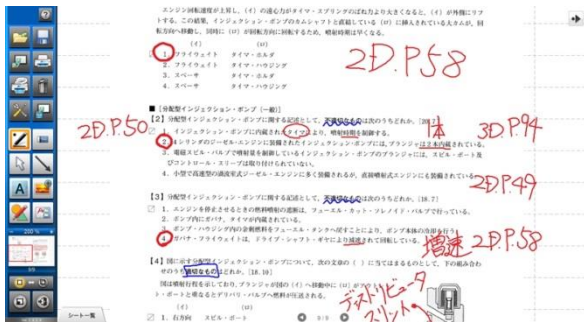 エンジン回転速度が上昇し、(イ)の遠心力がタイマ・スプリングのばね力より大きくなると、(イ)が外側にリフ
トする。この結果、インジェクション・ポンプのカムシャフトと直結している(ロ)に挿入されている大カムが、回
転方向へ移動し、同時に(ロ)が回転方向に回転するため、噴射時期は早くなる。
(イ) (ロ)
1. フライウェイト タイマ・ホルダ
2. フライウェイト タイマ・ハウジング
3. スペーサ タイマ・ホルダ
4. スペーサ タイマ・ハウジング
2D.P58
■ [分配型インジェクション・ポンプ(一般)]
【2】分配型インジェクション・ポンプに関する記述として、不適切なものは次のうちどれか。
2D.P.50
1. インジェクション・ポンプに内蔵されたタイマにより、噴射時期を制御する。
1本 3D.P.94
2. 4シリンダのジーゼル・エンジンに装備されたインジェクション・ポンプには、プランジャは2本内蔵されている。
3. 電磁スピル・バルブで噴射量を制御しているインジェクション・ポンプのプランジャには、スピル・ポート及
びコントロール・スリーブは取り付けられていない。
4. 小型で高速型の渦流室式ジーゼル・エンジンに多く装備されるが、直接噴射式エンジンにも装備されている。
2D.P.49
【3】分配型インジェクション・ポンプに関する記述として、不適切なものは次のうちどれか。[18.7]
1. エンジンを停止させるときの燃料噴射の遮断は、フューエル・カット・ソレノイド・バルブで行っている。
2. ポンプ内にガバナ、タイマが内蔵されている。
3. ポンプ・ハウジング内の余剰燃料をフューエル・タンクへ戻すことにより、ポンプ本体の冷却を行う。
4. ガバナ・フライウェイトは、ドライブ・シャフト・ギヤにより減速されて回転している。
増速 2D.P.58
【4】図に示す分配型インジェクション・ポンプについて、次の文章の( )に当てはまるものとして、下の組み合わ
せのうち適切なものはどれか。[18.10]
図は噴射行程を示しており、プランジャが図の(イ)へ移動中に(ロ)がプ
ト・ポートと重なるとデリバリ・バルブへ燃料が圧送される。
ディストリビュータ
スリット
(イ) (ロ)
1. 右方向 スピル・ポート
200 %
8/9
シート一覧
8/9